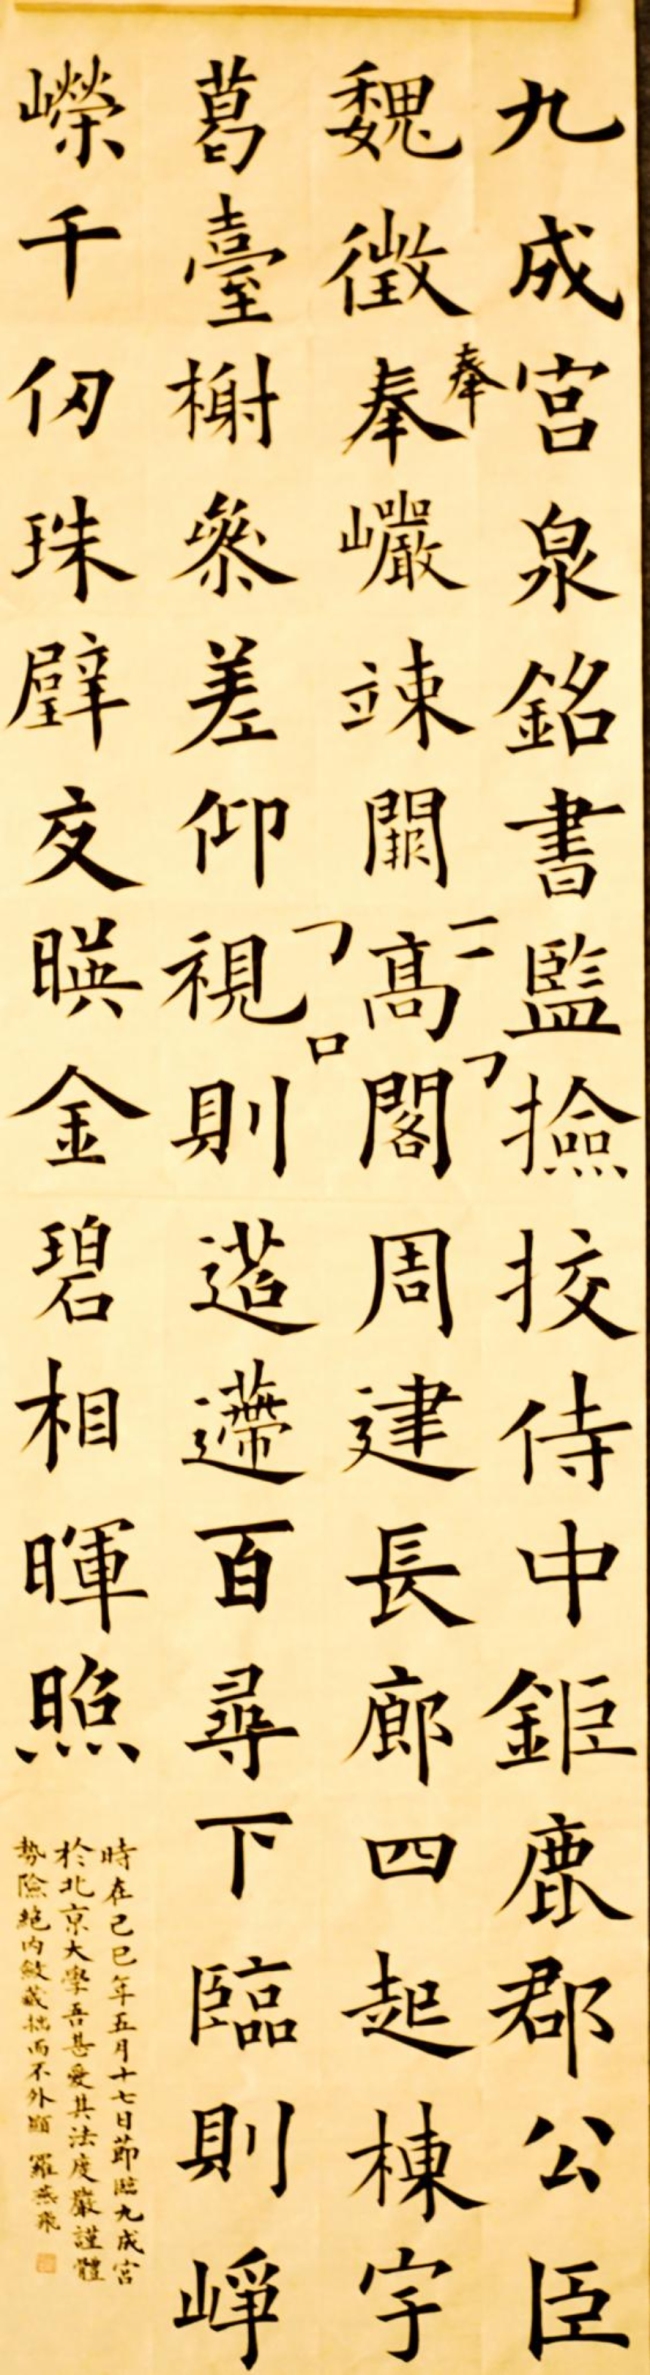 九成宮泉銘書監撿挍侍中鉅鹿郡公臣
奉
魏徵奉巗竦闕髙閣周建長廊四起棟宇
口
葛臺榭叅差仰視則迢遰百尋下臨則崢
嶸千仞珠璧交暎金碧相暉照
時在己巳年五月十七日節臨九成宮
於北京大學吾甚愛其法度嚴謹體
勢險絕內斂藏拙而不外顯 羅燕飛